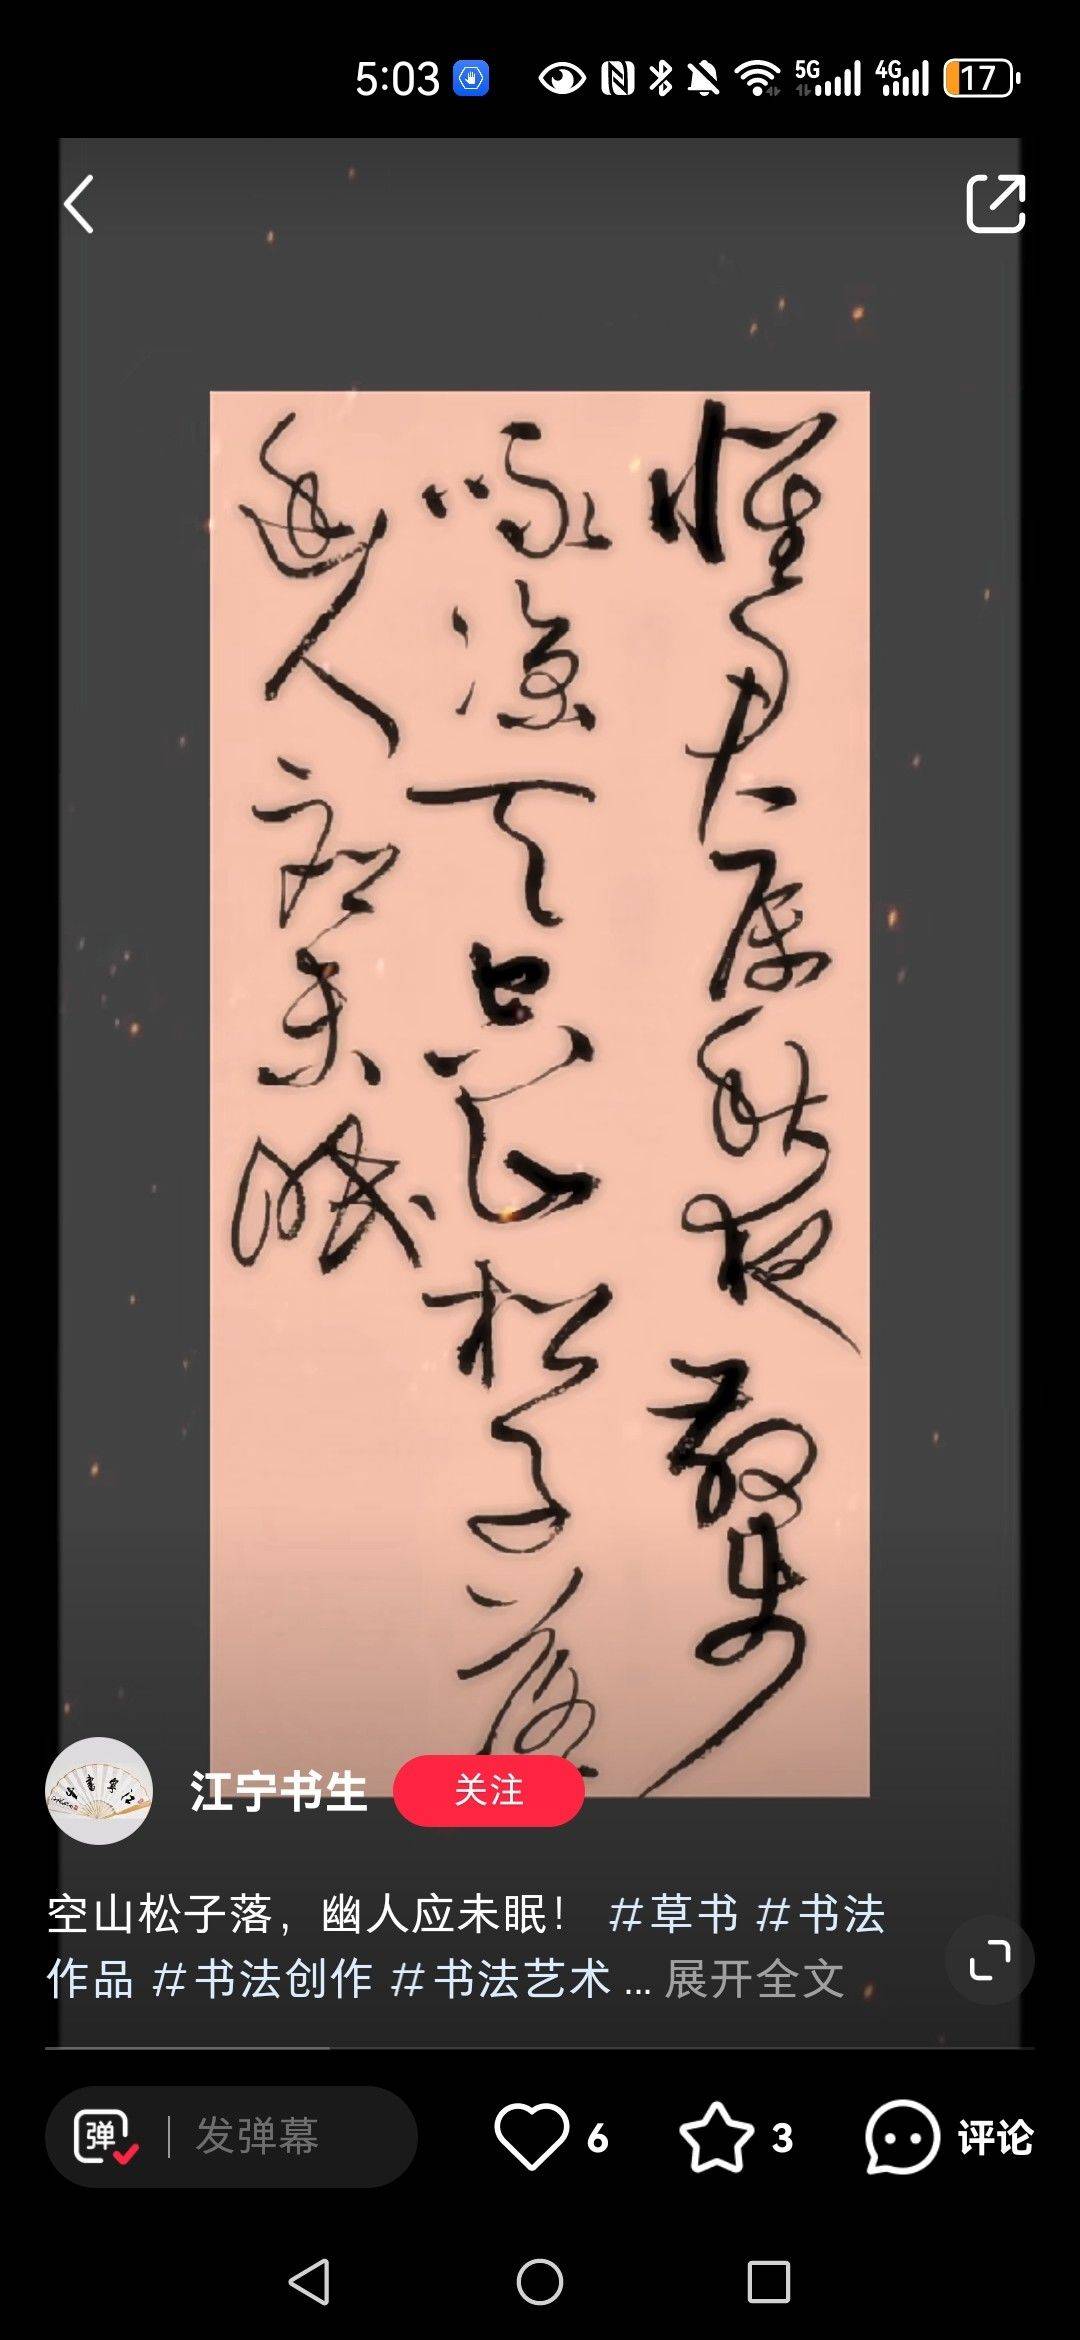 5:03
5G
4G
17
懷君属秋夜散步
咏凉天空山松子落
幽人应未眠
江宁书生
关注
空山松子落，幽人应未眠！ #草书 #书法
作品 #书法创作 #书法艺术 ... 展开全文
弹
发弹幕
6
3
评论